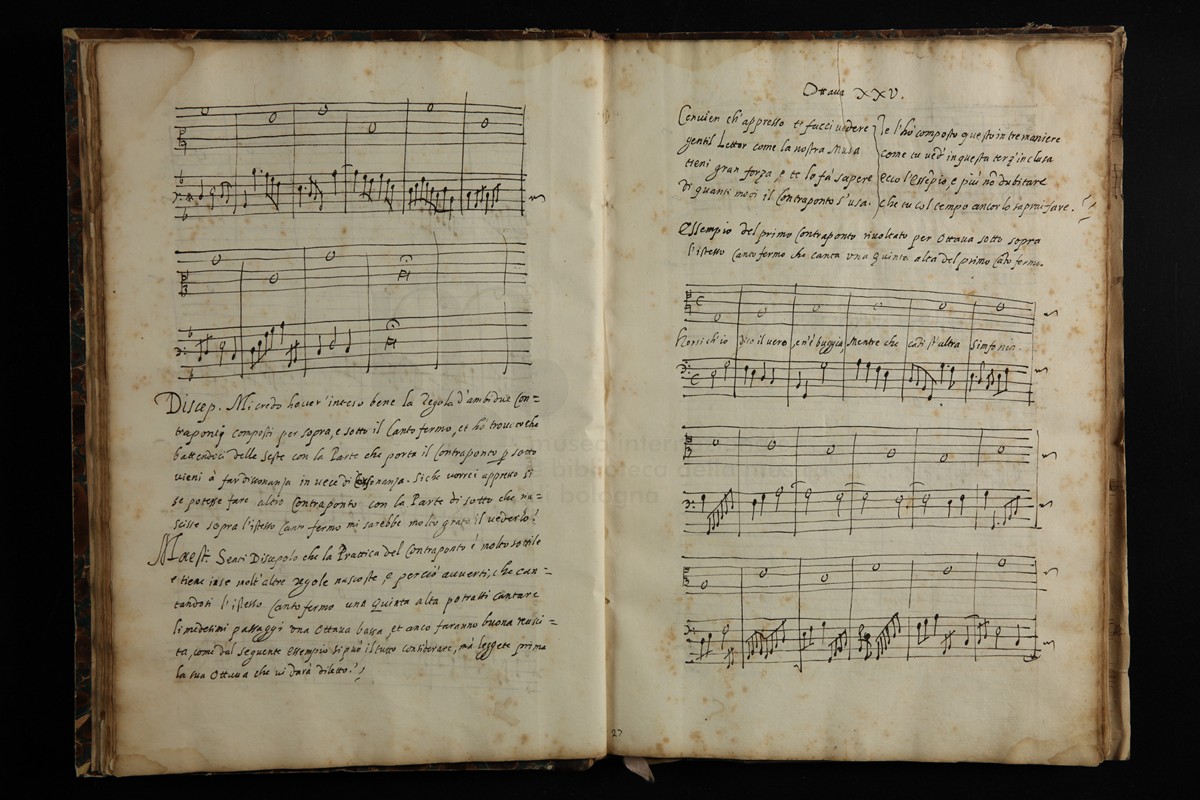 Discep. Mi credo haver' inteso bene la Regola d'ambidue Con=
traponti composti per sopra, e sotto il Canto fermo, et hò trovato che
battendosi delle seste con la Parte che porta il Contraponto p sotto
vieni à far dissonanza in vece di Consonanza. Siche vorrei appresso si
se potesse fare altro Contraponto con la Parte di sotto che na=
scisse sopra l'istesso Canto fermo mi sarebbe molto grato il vederlo!
Maest. Senti Discepolo che la Prattica del Contraponto è molto sottile
e tiene in se molt'altre regole nascoste, e perciò avverti, che can=
tandosi l'istesso Canto fermo una Quinta alta potrassi Cantare
li medesimi passaggi una Ottava bassa, et anco faranno buona riusci=
ta, come dal seguente essempio si può il tutto considerare, mà leggete prima
la sua Ottava che vi darà diletto!
27
Ottava XXV.
Convien ch'appresso ti facci vedere
gentil Lettor come la nostra Musa
tieni gran forza, e te lo fà sapere
di quanti modi il Contraponto s'usa.
e l'hò composto questo in tre maniere
come tu ved' in questa terz'inclusa
ecco l'Essepio, e più nõ dubitare
che tu col tempo ancor lo saprai fare.
Essempio del primo Contraponto rivoltato per Ottava sotto sopra
l'istesso Canto fermo che canta una Quinta alta del primo Cãto fermo.
Hor sì ch'io dico il vero, e n'è buggia, Mentre che canti st'altra Simfonia.
museo internazionale
e biblioteca della musica
di bologna